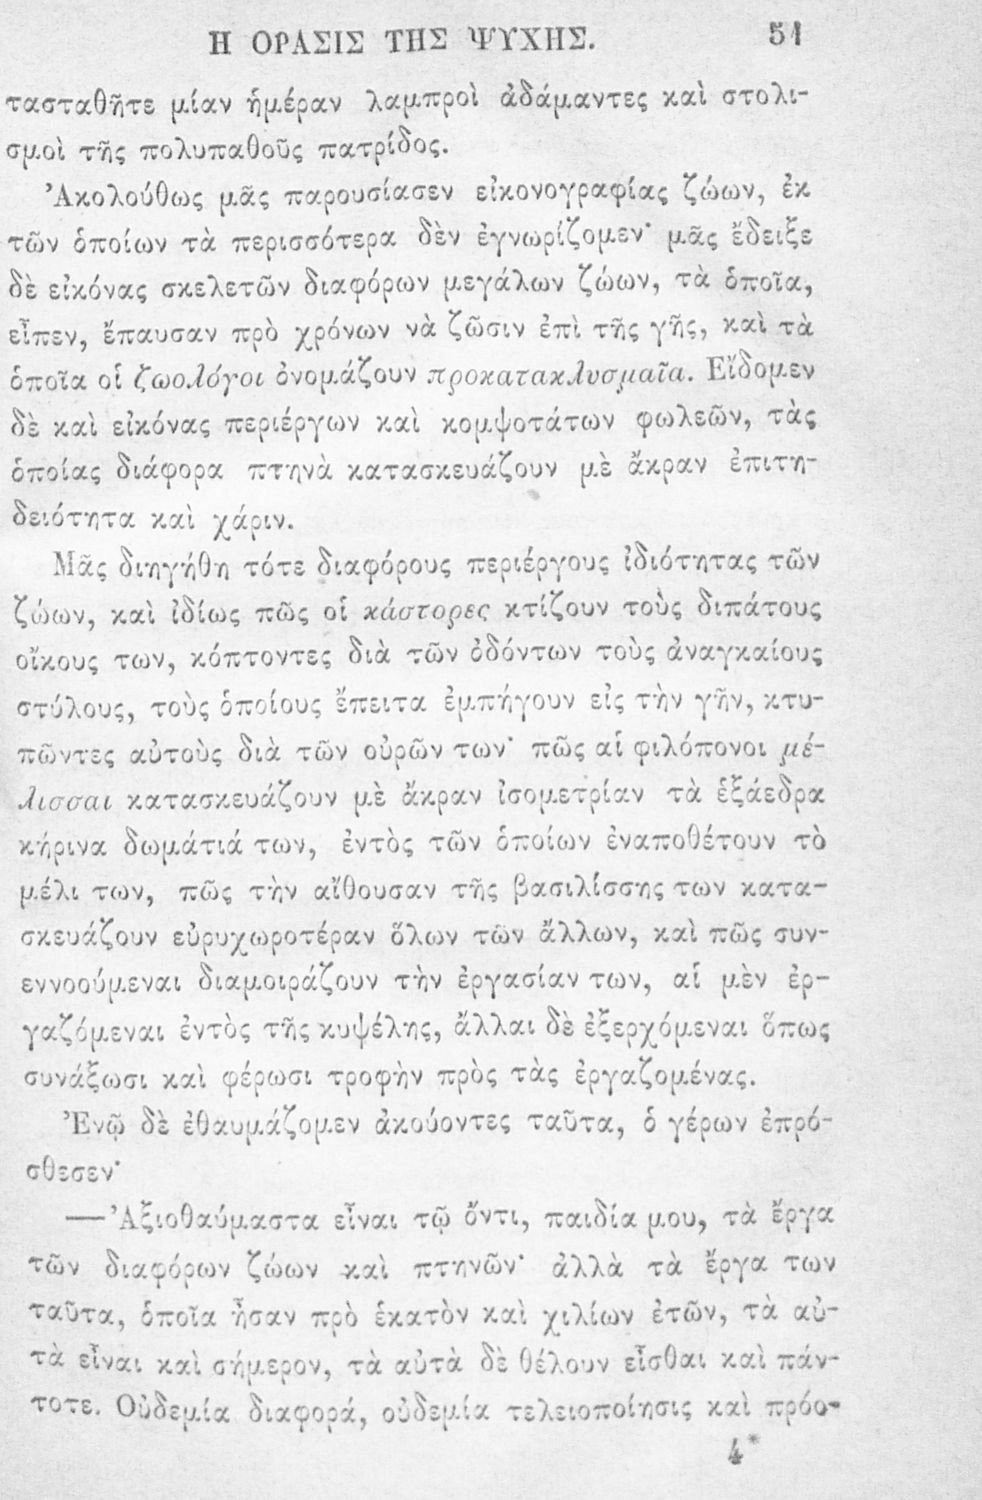 Η ΟΡΑΣΙΣ ΤΗΣ ΨΥΧΗΣ. 51
τασταθῆτε μίαν ἡμέραν λαμπροὶ ἀδάμαντες καὶ στολι-
σμοὶ τῆς πολυπαθοῦς πατρίδος.
Ἀκολούθως μᾶς παρουσίασεν εἰκονογραφίας ζώων, ἐκ
τῶν ὁποίων τὰ περισσότερα δὲν ἐγνωρίζομεν· μᾶς ἔδειξε
δὲ εἰκόνας σκελετῶν διαφόρων μεγάλων ζώων, τὰ ὁποῖα,
εἶπεν, ἔπαυσαν πρὸ χρόνων νὰ ζῶσιν ἐπὶ τῆς γῆς, καὶ τὰ
ὁποῖα οἱ ζωολόγοι ὀνομάζουν προκατακλυσμαῖα. Εἴδομεν
δὲ καὶ εἰκόνας περιέργων καὶ κομψοτάτων φωλεῶν, τὰς
ὁποίας διάφορα πτηνὰ κατασκευάζουν μὲ ἄκραν ἐπιτη-
δειότητα καὶ χάριν.
Μᾶς διηγήθη τότε διαφόρους περιέργους ἰδιότητας τῶν
ζώων, καὶ ἰδίως πῶς οἱ κάστορες κτίζουν τοὺς διπάτους
οἴκους των, κόπτοντες διὰ τῶν ὀδόντων τοὺς ἀναγκαίους
στύλους, τοὺς ὁποίους ἔπειτα ἐμπήγουν εἰς τὴν γῆν, κτυ-
πῶντες αὐτοὺς διὰ τῶν οὐρῶν των· πῶς αἱ φιλόπονοι μέ-
λισσαι κατασκευάζουν μὲ ἄκραν ἰσομετρίαν τὰ ἑξάεδρα
κήρινα δωμάτιά των, ἐντὸς τῶν ὁποίων ἐναποθέτουν τὸ
μέλι των, πῶς τὴν αἴθουσαν τῆς βασιλίσσης των κατα-
σκευάζουν εὐρυχωροτέραν ὅλων τῶν ἄλλων, καὶ πῶς συν-
εννοούμεναι διαμοιράζουν τὴν ἐργασίαν των, αἱ μὲν ἐρ-
γαζόμεναι ἐντὸς τῆς κυψέλης, ἄλλαι δὲ ἐξερχόμεναι ὅπως
συνάξωσι καὶ φέρωσι τροφὴν πρὸς τὰς ἐργαζομένας.
Ἐνῷ δὲ ἐθαυμάζομεν ἀκούοντες ταῦτα, ὁ γέρων ἐπρό-
σθεσεν·
—Ἀξιοθαύμαστα εἶναι τῷ ὄντι, παιδία μου, τὰ ἔργα
τῶν διαφόρων ζώων καὶ πτηνῶν· ἀλλὰ τὰ ἔργα των
ταῦτα, ὁποῖα ἦσαν πρὸ ἑκατὸν καὶ χιλίων ἐτῶν, τὰ αὐ-
τὰ εἶναι καὶ σήμερον, τὰ αὐτὰ δὲ θέλουν εἶσθαι καὶ πάν-
τοτε. Οὐδεμία διαφορά, οὐδεμία τελειοποίησις καὶ πρόο-
4*